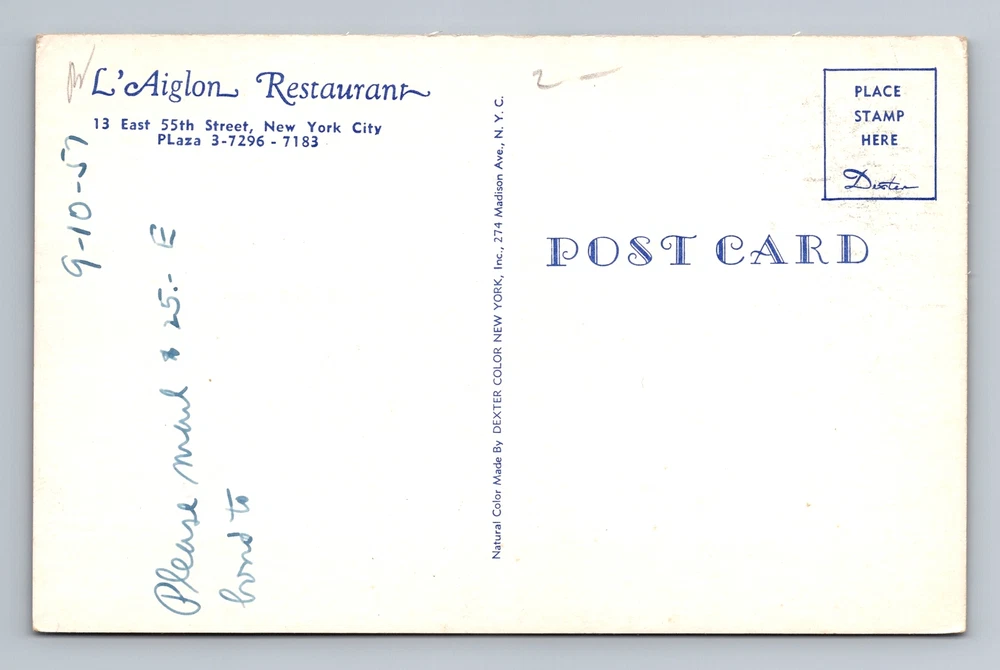 L'Aiglon Restaurant
13 East 55th Street, New York City
PLaza 3-7296 - 7183
9-10-57
Please mail $25.- E
bond to
Natural Color Made By DEXTER COLOR NEW YORK, Inc., 274 Madison Ave., N. Y. C.
2 -
PLACE
STAMP
HERE
Dexter
POST CARD